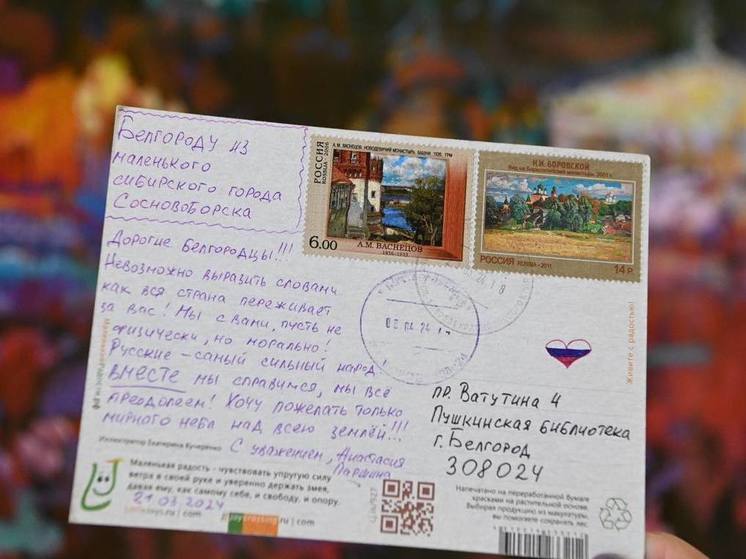 Белгороду из
маленького
сибирского города
Сосновоборска
А.М. ВАСНЕЦОВ. НОВОДЕВИЧИЙ МОНАСТЫРЬ. БАШНИ. 1926. ГТМ
РОССИЯ
ROSSIJA 2006
6.00
А.М. ВАСНЕЦОВ
1856-1933
Н.И. БОРОВСКОЙ
Вид на Борисоглебский монастырь. 2001 г.
РОССИЯ ROSSIJA 2011
14 Р.
Дорогие Белгородцы!!!
Невозможно выразить словами
как вся страна переживает
за вас! Мы с вами, пусть не
физически, но морально!
Русские – самый сильный народ!
ВМЕСТЕ мы справимся, мы всё
преодолеем! Хочу пожелать только
мирного неба над всею землёй!!!
С уважением, Анастасия
Паршина
21.03.2024
24
Живите с радостью!
пр. Ватутина 4
Пушкинская библиотека
г. Белгород
308024
Иллюстратор Екатерина Кучеренко
Маленькая радость – чувствовать упругую силу
ветра в своей руке и уверенно держать змея,
давая ему, как самому себе, и свободу, и опору.
.ru | .com
.ru | .com
Отпечатано на переработанной бумаге
красками на растительной основе.
Выбирая продукцию из макулатуры,
Вы помогаете сохранять лес.